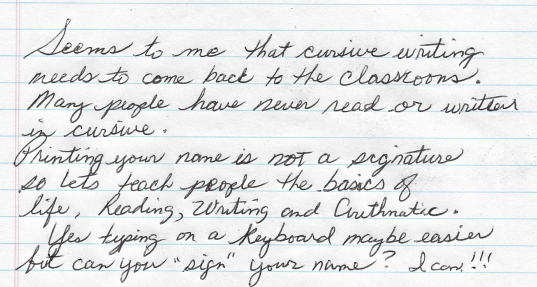 Seems to me that cursive writing
needs to come back to the classrooms.
Many people have never read or written
in cursive.
Printing your name is not a signature
so lets teach people the basics of
life, Reading, Writing and Arithmatic.
Yes typing on a keyboard maybe easier
but can you "sign" your name? I can!!!